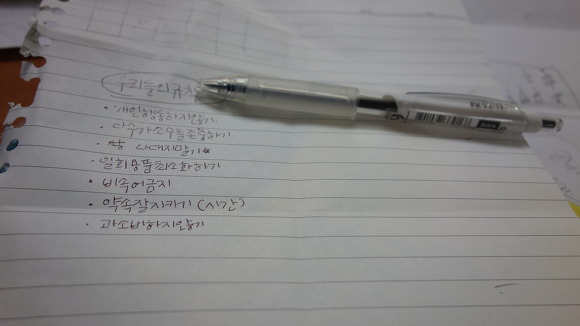 우리들의 규칙
• 개인행동하지않기.
• 다수가 소수를 존중하기.
• 나대지말기
• 일회용품최소화하기
• 비속어금지
• 약속잘지키기 (시간)
• 과소비하지않기